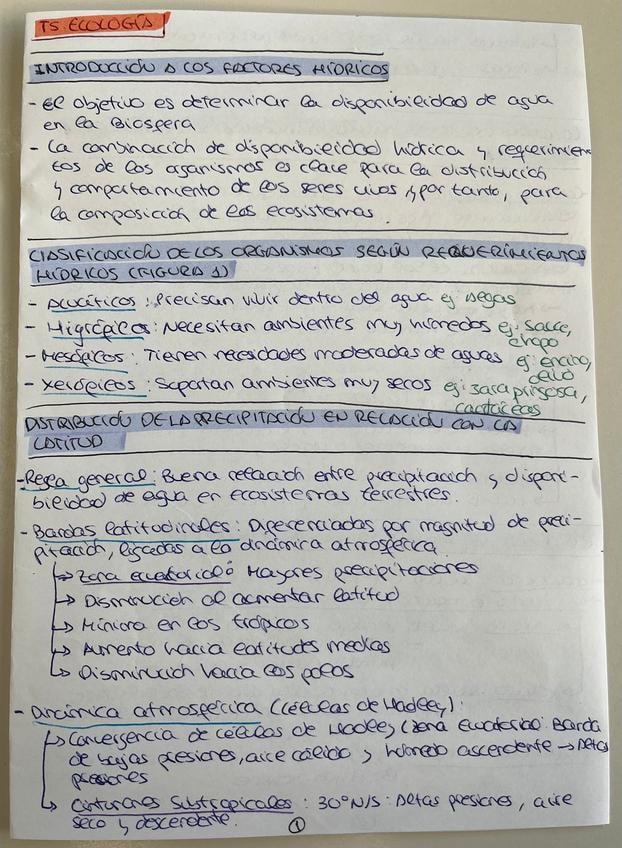 T5 ECOLOGÍA
INTRODUCCIÓN A LOS FACTORES HÍDRICOS
- El objetivo es determinar la disponibilidad de agua
en la Biosfera
- La combinación de disponibilidad hídrica y requerimien
tos de los organismos es clave para la distribución
y comportamiento de los seres vivos y, por tanto, para
la composición de los ecosistemas.
CLASIFICACIÓN DE LOS ORGANISMOS SEGÚN REQUERIMIENTOS
HÍDRICOS (FIGURA 1)
- Acuáticos: Precisan vivir dentro del agua ej: Algas
- Higrófilos: Necesitan ambientes muy húmedos ej: sauce,
chopo
- Mesófilos: Tienen necesidades moderadas de aguas ej: encina,
- Xerófilos: Soportan ambientes muy secos ej: jara pringosa,
cactáceas
DISTRIBUCIÓN DE LA PRECIPITACIÓN EN RELACIÓN CON LA
LATITUD
- Regla general: Buena relación entre precipitación y disponi-
bilidad de agua en ecosistemas terrestres.
- Bandas latitudinales: Diferenciadas por magnitud de preci-
pitación, ligadas a la dinámica atmosférica
→ Zona ecuatorial: Mayores precipitaciones
→ Disminución al aumentar latitud
→ Mínima en los trópicos
→ Aumento hacia latitudes medias
→ Disminución hacia los polos
- Dinámica atmosférica (Células de Hadley):
→ Convergencia de células de Hadley (Zona Ecuatorial: Banda
de bajas presiones, aire cálido y húmedo ascendente → Altas
presiones
→ Cinturones Subtropicales: 30°N/S: Altas presiones, aire
seco y descendente.
1